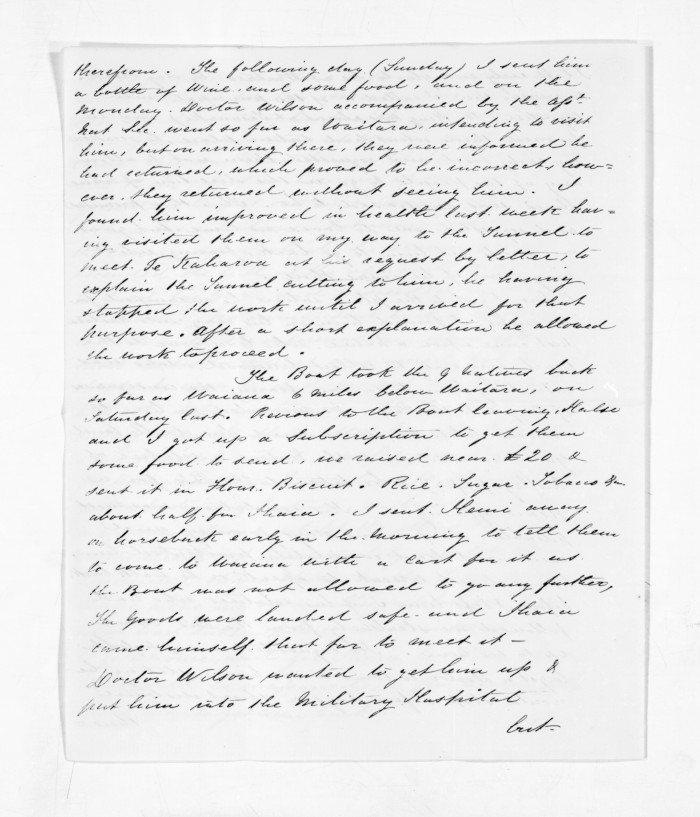 therefrom. The following day (Sunday) I sent him
a bottle of Wine and some food, and on the
Monday. Doctor Wilson accompanied by the Asst.
Nat Sec. went so far as Waitara, intending to visit
him, but on arriving there, they were informed he
had returned, which proved to be incorrect, how=
ever, they returned without seeing him. I
found him improved in health last week hav=
ing visited them on my way to the Tunnel to
meet Te Kaharoa at his request by letter, to
explain the Tunnel cutting to him, he having
stopped the work until I arrived for that
purpose. After a short explanation he allowed
the work to proceed.
The Boat took the 9 Natives back
so far as Waiana 6 miles below Waitara, on
Saturday last. Previous to the Boat leaving,
and I got up a Subscription to get them
some food to send, we raised near £20 &
sent it in Flour. Biscuit. Rice. Sugar. Tobacco &c.
about half for Ihaia. I sent Hemi away
on horseback early in the morning to tell them
to come to Waiana with a Cart for it as
the Boat was not allowed to go any further,
The Goods were landed safe and Ihaia
came himself that far to meet it –
Doctor Wilson wanted to get him up &
put him into the Military Hospital
but.